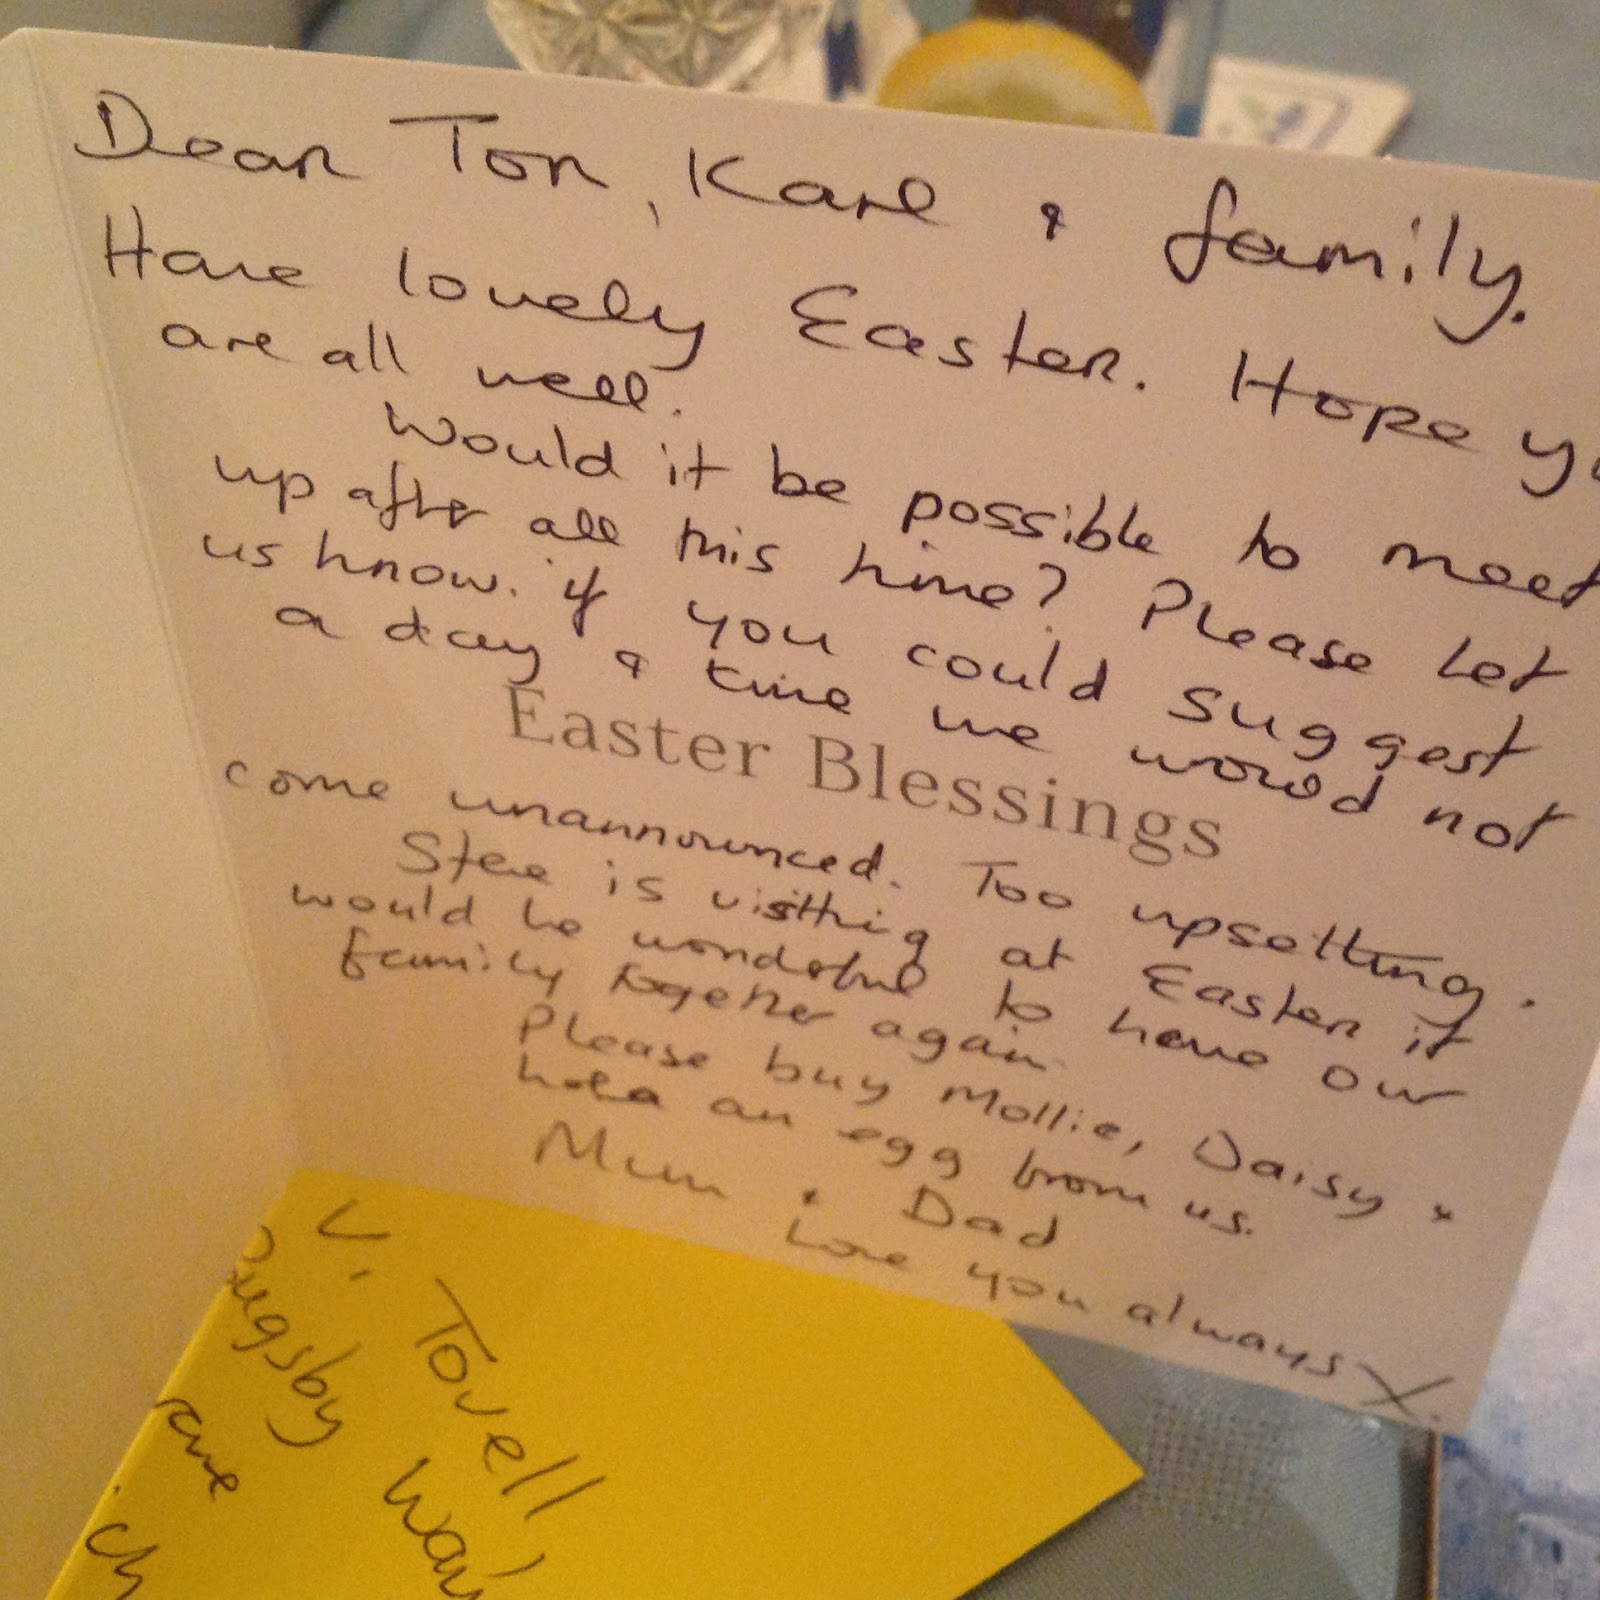 Dear Tor, Karl & family.
Have lovely Easter. Hope yo
are all well.
Would it be possible to meet
up after all this time? Please let
us know. if you could suggest
a day & time we would not
Easter Blessings
come unannounced. Too upsetting.
Steve is visiting at Easter it
would be wonderful to have our
family together again
Please buy Mollie, Daisy &
an egg from us.
Mum & Dad
Love you always X.
Tovell
ugsby Way